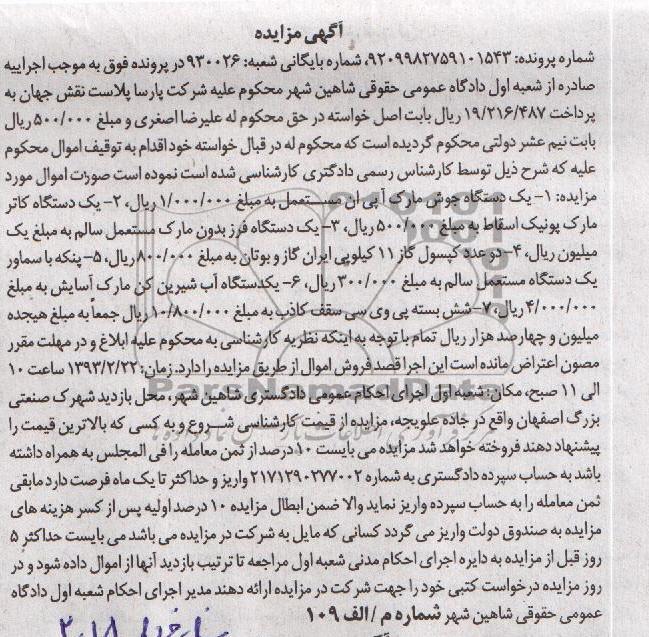 آگهی مزایده
شماره پرونده: ۹۲۰۹۹۸۲۷۵۹۱۰۱۵۴۳، شماره بایگانی شعبه: ۹۳۰۰۲۶ در پرونده فوق به موجب اجراییه
صادره از شعبه اول دادگاه عمومی حقوقی شاهین شهر محکوم علیه شرکت پارسا پلاست نقش جهان به
پرداخت ۱۹/۲۱۶/۴۸۷ ریال بابت اصل خواسته در حق محکوم له علیرضا اصغری و مبلغ ۵۰۰/۰۰۰ ریال
بابت نیم عشر دولتی محکوم گردیده است که محکوم له در قبال خواسته خود اقدام به توقیف اموال محکوم
علیه که شرح ذیل توسط کارشناس رسمی دادگتری کارشناسی شده است نموده است صورت اموال مورد
مزایده: ۱- یک دستگاه جوش مارک آ بی ان مستعمل به مبلغ ۱/۰۰۰/۰۰۰ ریال، ۲- یک دستگاه کاتر
مارک پونیک اسقاط به مبلغ ۵۰۰/۰۰۰ ریال، ۳- یک دستگاه فرز بدون مارک مستعمل سالم به مبلغ یک
میلیون ریال، ۴- دو عدد کپسول گاز ۱۱ کیلویی ایران گاز و بوتان به مبلغ ۸۰۰/۰۰۰ ریال، ۵- پنکه با سماور
یک دستگاه مستعمل سالم به مبلغ ۳۰۰/۰۰۰ ریال، ۶- یکدستگاه آب شیرین کن مارک آسایش به مبلغ
۴/۰۰۰/۰۰۰ ریال، ۷- شش بسته پی وی سی سقف کاذب به مبلغ ۱۰/۸۰۰/۰۰۰ ریال جمعاً به مبلغ هیجده
میلیون و چهارصد هزار ریال تمام با توجه به اینکه نظریه کارشناسی به محکوم علیه ابلاغ و در مهلت مقرر
مصون اعتراض مانده است این اجرا قصد فروش اموال از طریق مزایده را دارد. زمان: ۱۳۹۳/۲/۲۲ ساعت ۱۰
الی ۱۱ صبح، مکان: شعبه اول اجرای احکام عمومی دادگستری شاهین شهر، محل بازدید شهرک صنعتی
بزرگ اصفهان واقع در جاده علویجه، مزایده از قیمت کارشناسی شروع و به کسی که بالاترین قیمت را
پیشنهاد دهند فروخته خواهد شد مزایده می بایست ۱۰ درصد از ثمن معامله را فی المجلس به همراه داشته
باشد به حساب سپرده دادگستری به شماره ۲۱۷۱۲۹۰۲۷۷۰۰۲ واریز و حداکثر تا یک ماه فرصت دارد مابقی
ثمن معامله را به حساب سپرده واریز نماید والا ضمن ابطال مزایده ۱۰ درصد اولیه پس از کسر هزینه های
مزایده به صندوق دولت واریز می گردد کسانی که مایل به شرکت در مزایده می باشد می بایست حداکثر ۵
روز قبل از مزایده به دایره اجرای احکام مدنی شعبه اول مراجعه تا ترتیب بازدید آنها از اموال داده شود و در
روز مزایده درخواست کتبی خود را جهت شرکت در مزایده ارائه دهند مدیر اجرای احکام شعبه اول دادگاه
عمومی حقوقی شاهین شهر شماره م / الف ۱۰۹
ParsNamadData